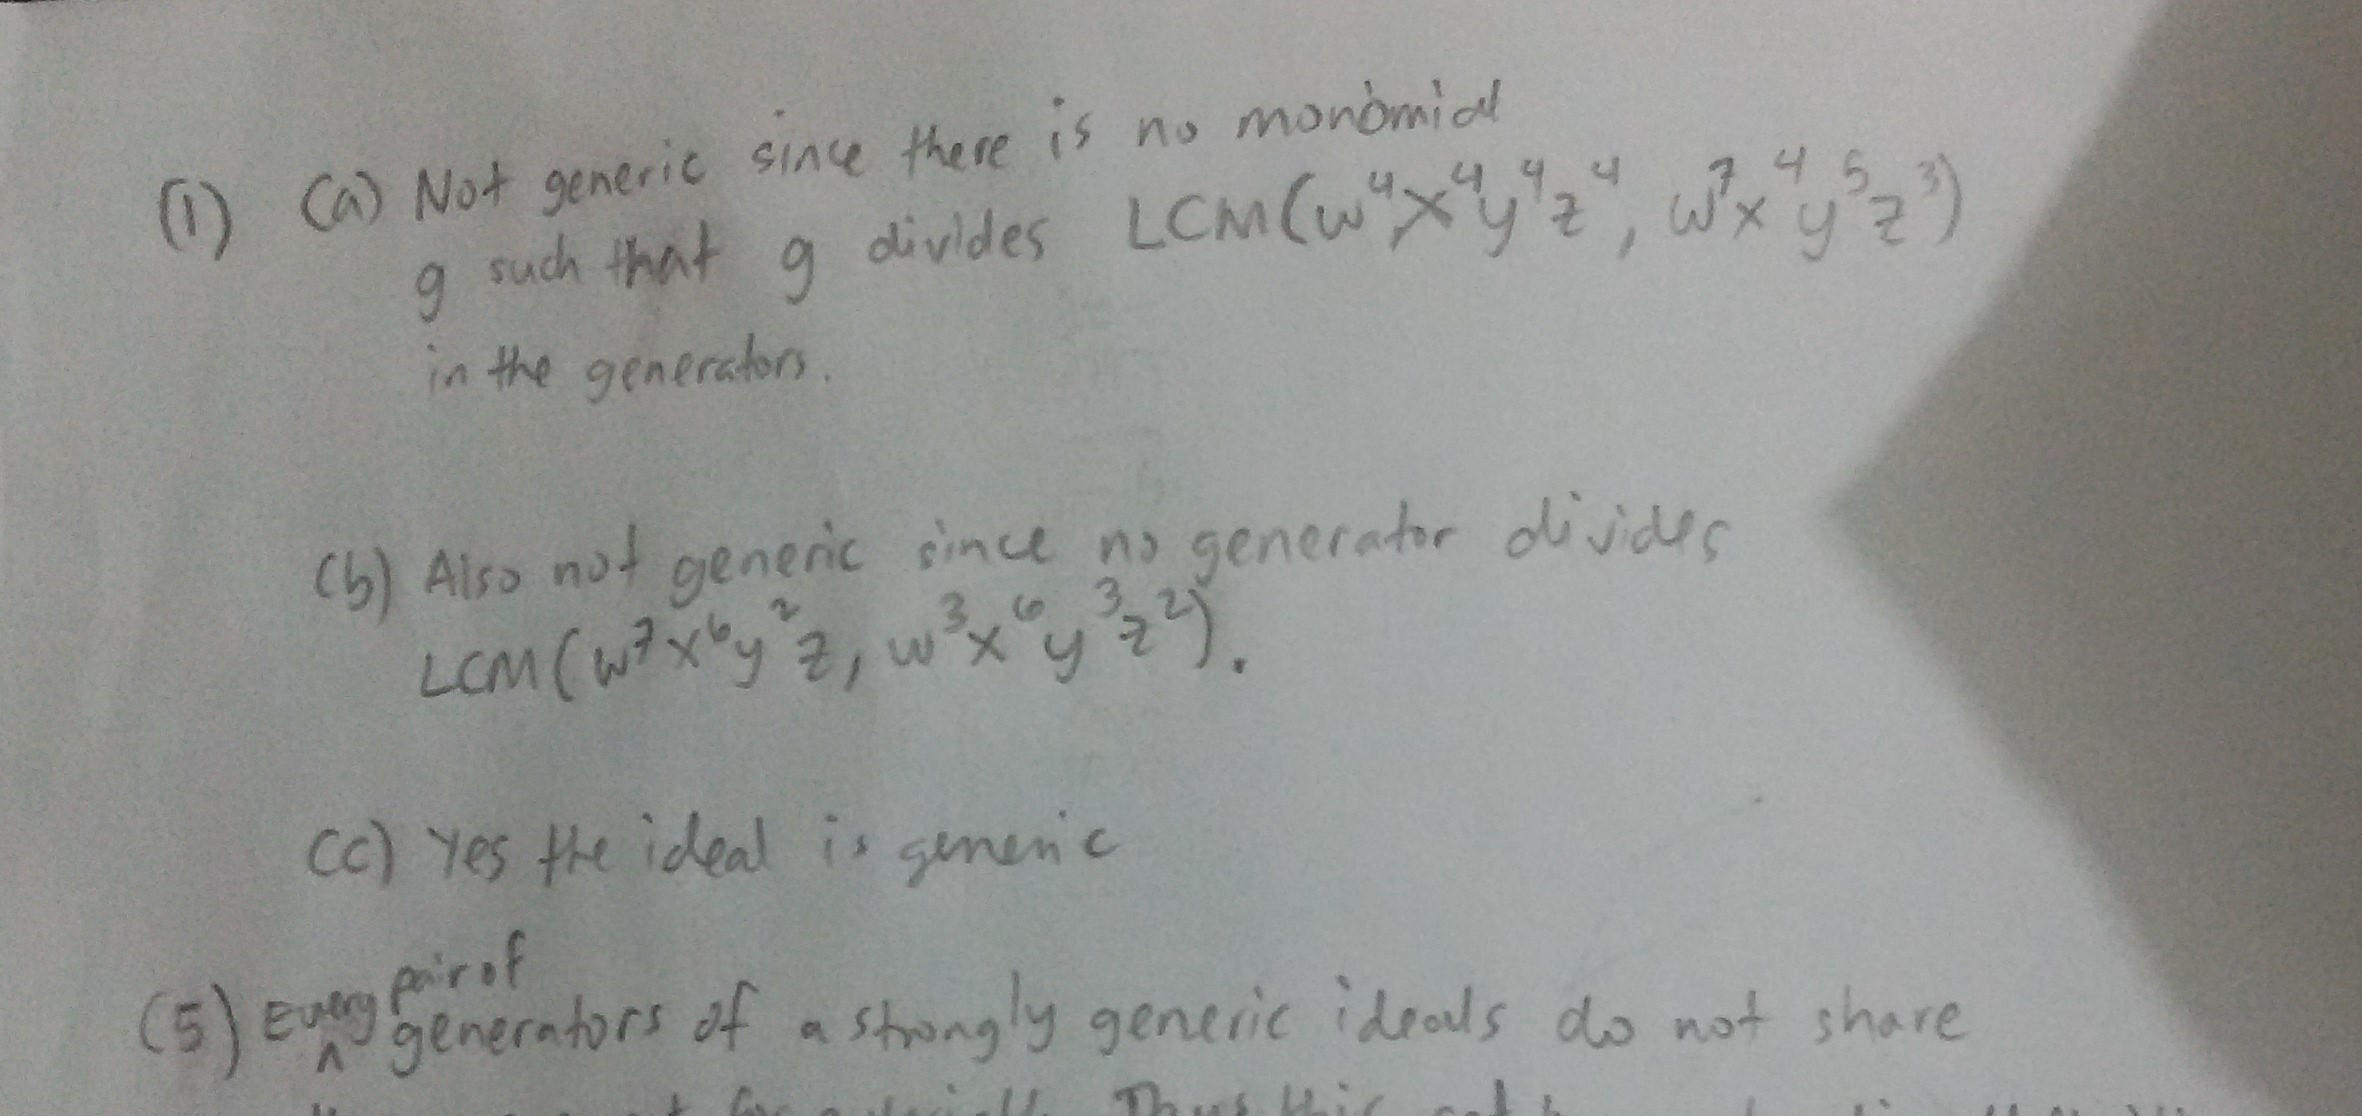 (1) (a) Not generic since there is no monomial
g such that g divides LCM(w⁴x⁴y⁴z⁴, w⁷x⁴y⁵z³)
in the generators.
(b) Also not generic since no generator divides
LCM(w⁷x⁶y²z, w³x⁶y³z²).
(c) Yes the ideal is generic
pair of
(5) Every ^ generators of a strongly generic ideals do not share
Thus this